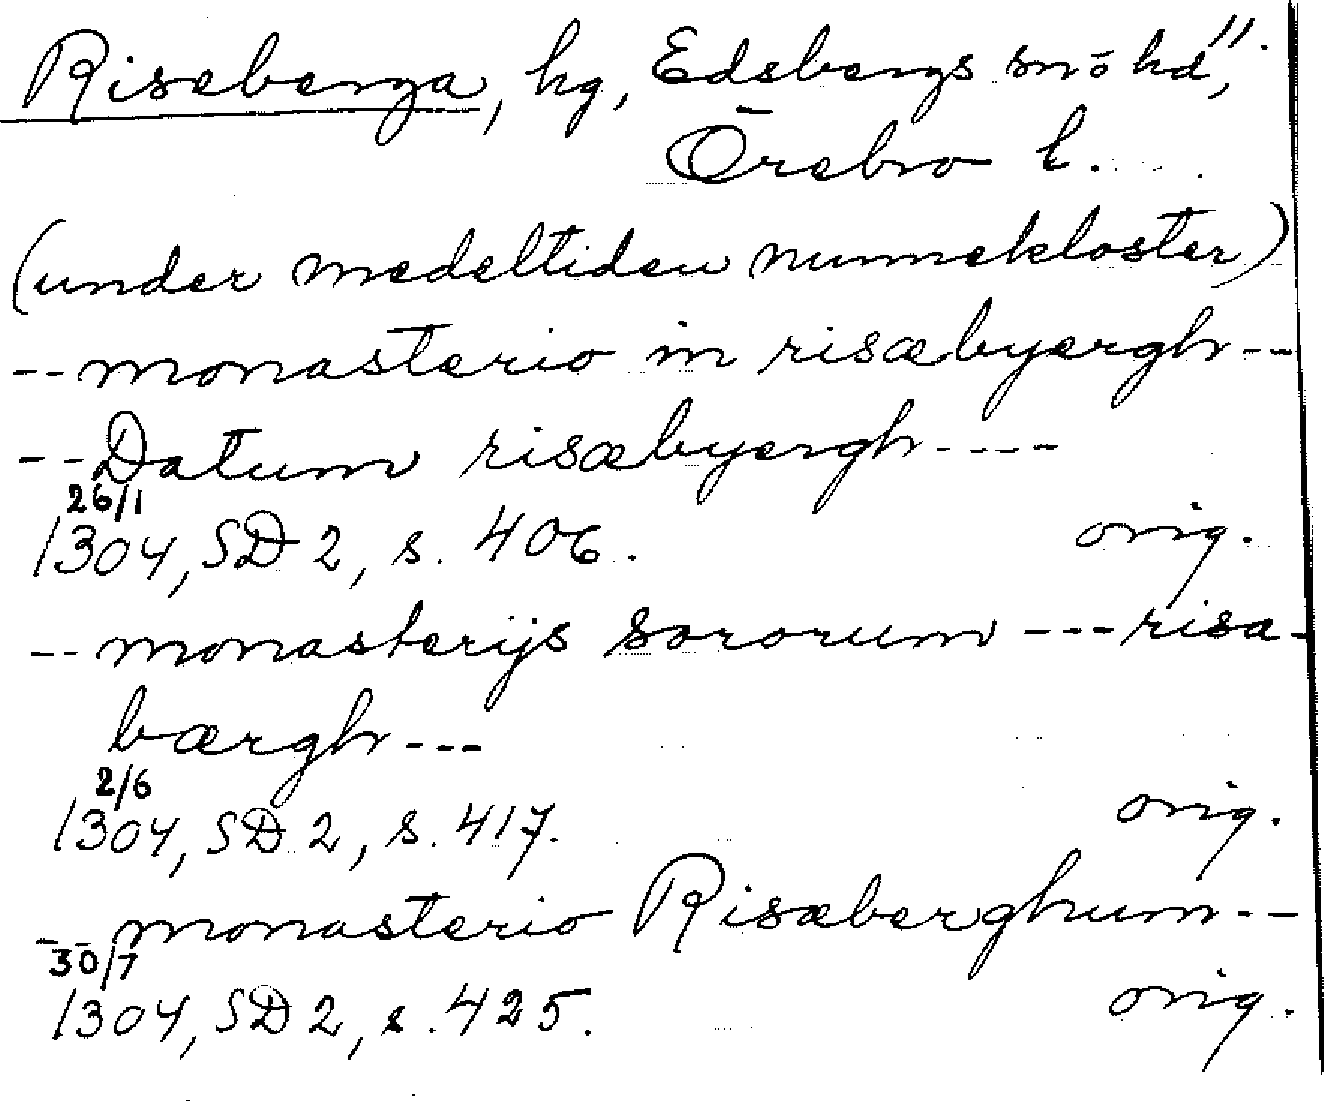 Riseberga, hg, Edsbergs sn o hd,
Örebro l.
(under medeltiden nunnekloster)
-- monasterio in risæbyergh --
-- Datum risæbyergh ----
26/1
1304, SD 2, s. 406. orig.
-- monasterijs sororum --- risa-
bærgh ---
2/6
1304, SD 2, s. 417. orig.
-- monasterio Risæberghum --
30/7
1304, SD 2, s. 425. orig.